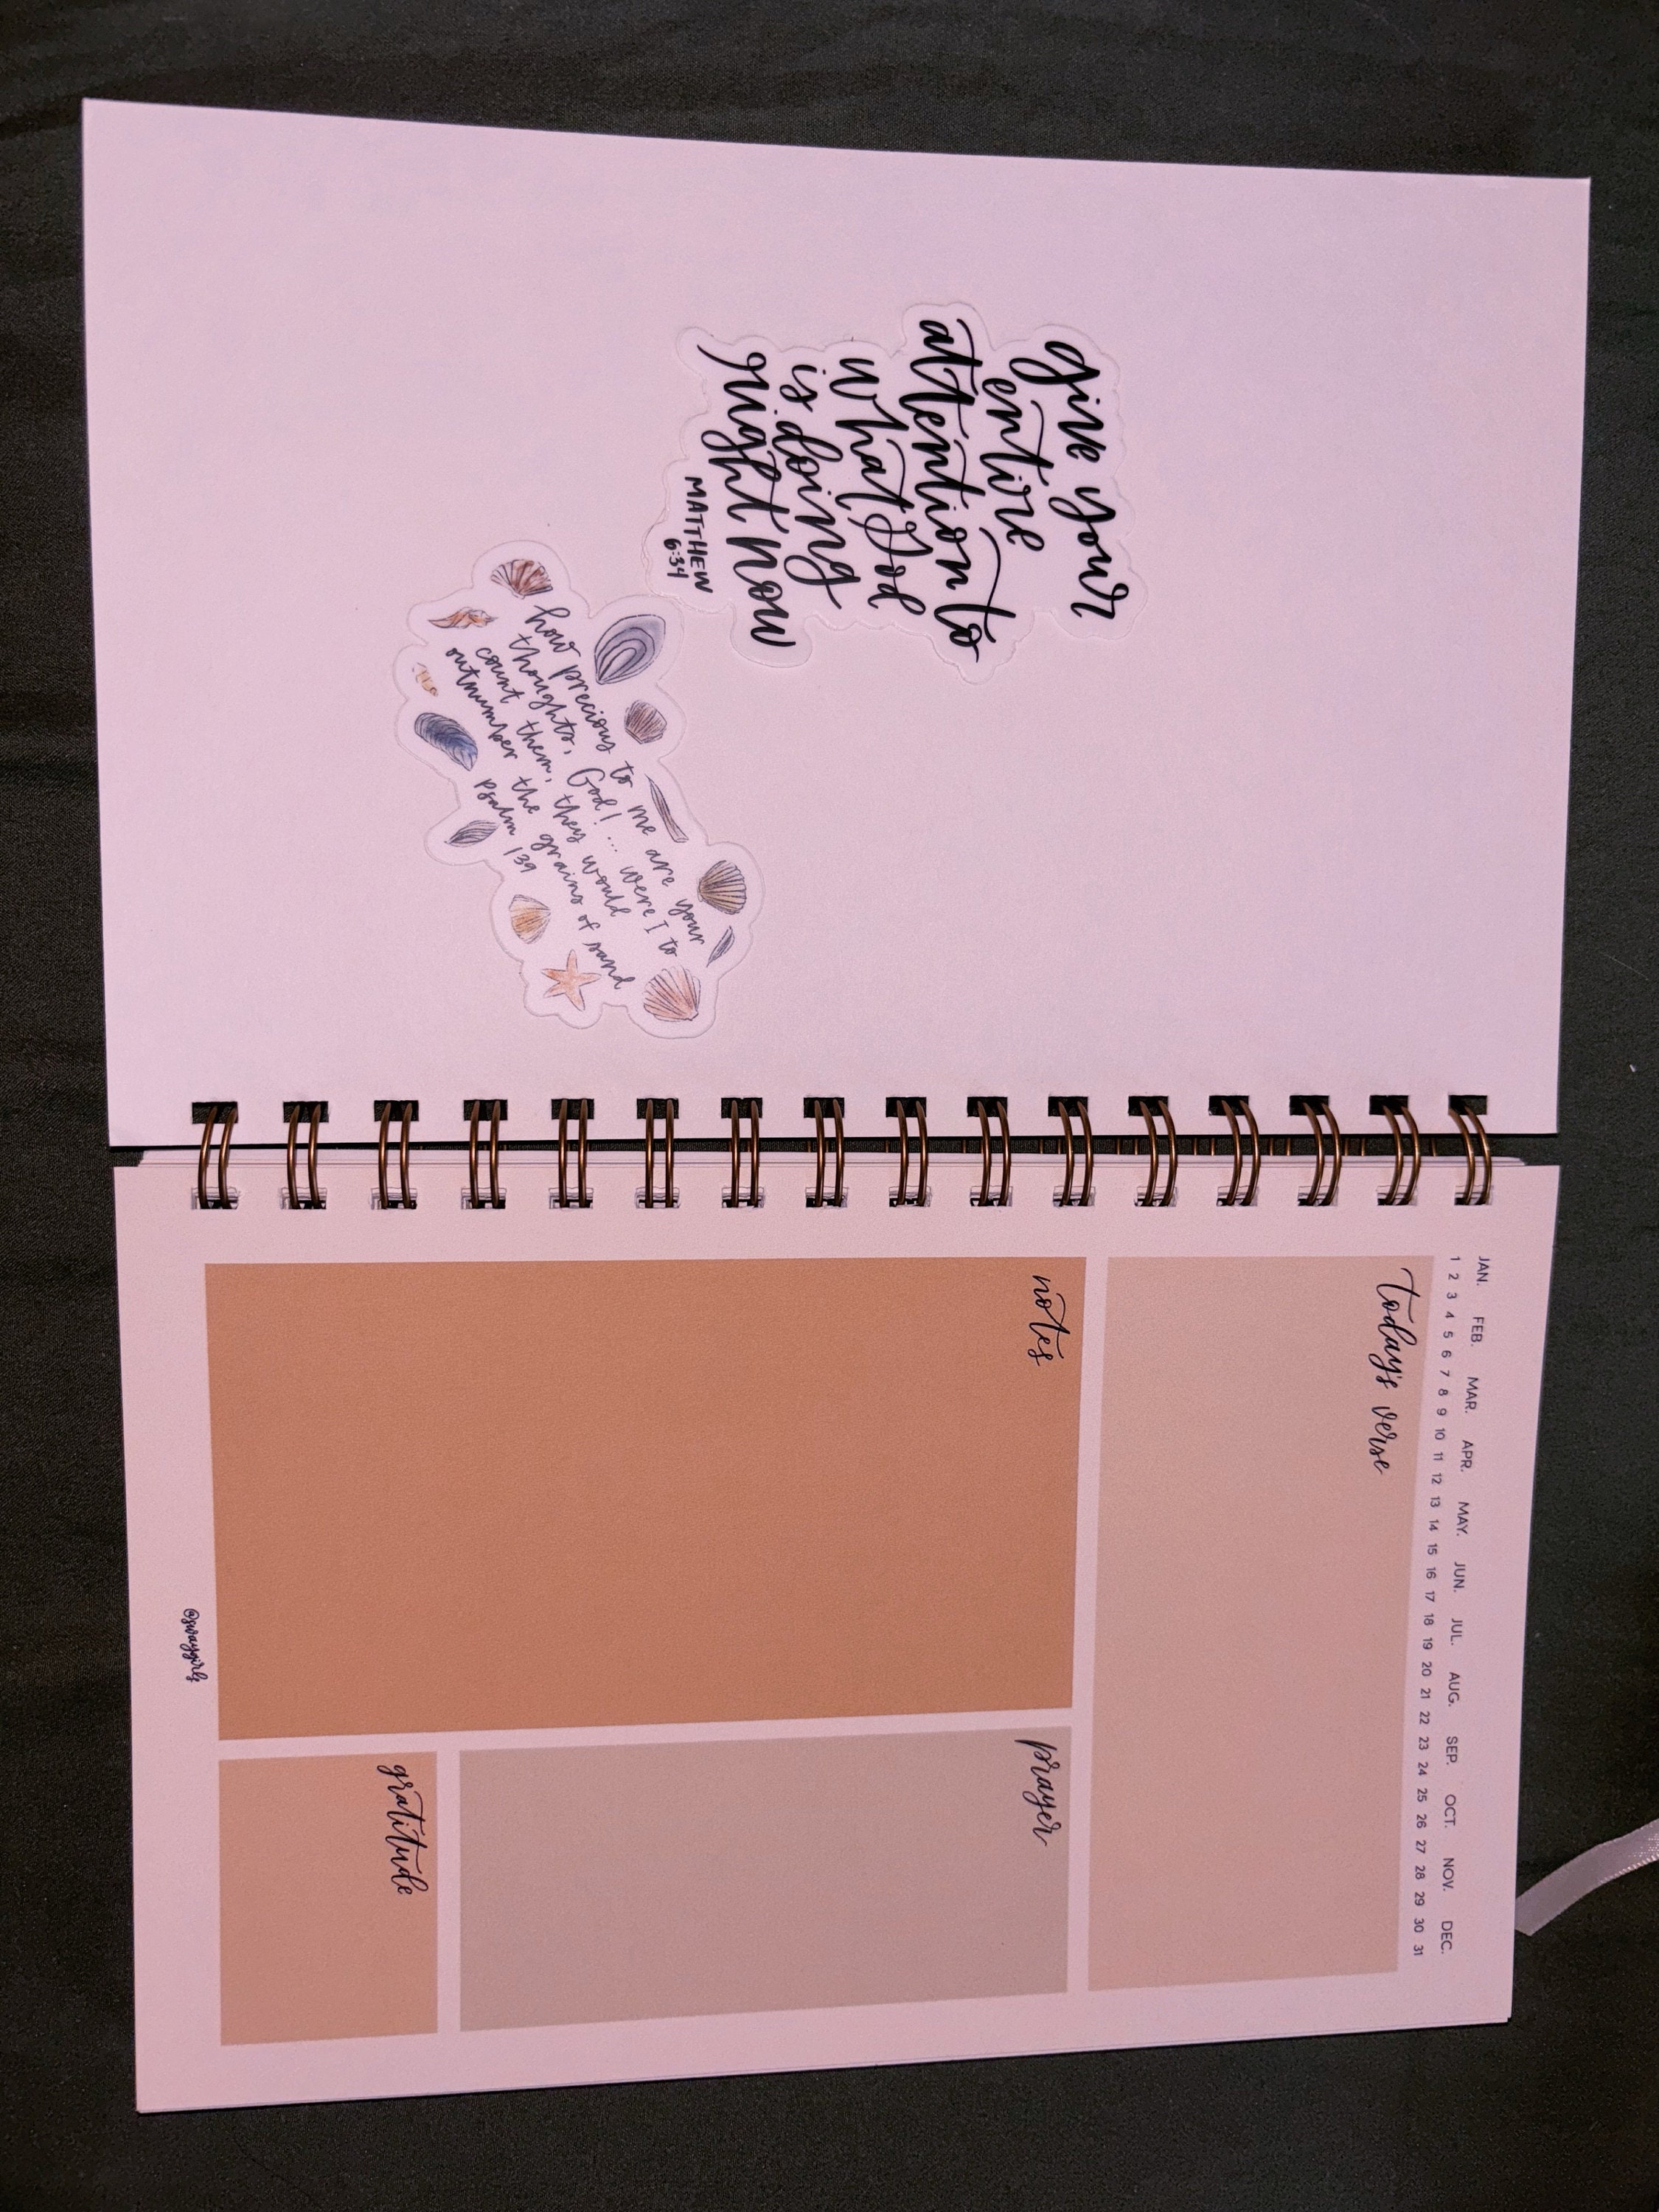 give your
entire
attention to
what God
is doing
right now
MATTHEW
6:34
how precious to me are your
thoughts, God! ... were I to
count them, they would
outnumber the grains of sand
psalm 139
JAN. FEB. MAR. APR. MAY. JUN. JUL. AUG. SEP. OCT. NOV. DEC.
1 2 3 4 5 6 7 8 9 10 11 12 13 14 15 16 17 18 19 20 21 22 23 24 25 26 27 28 29 30 31
today's verse
notes
prayer
gratitude
@swaygirls